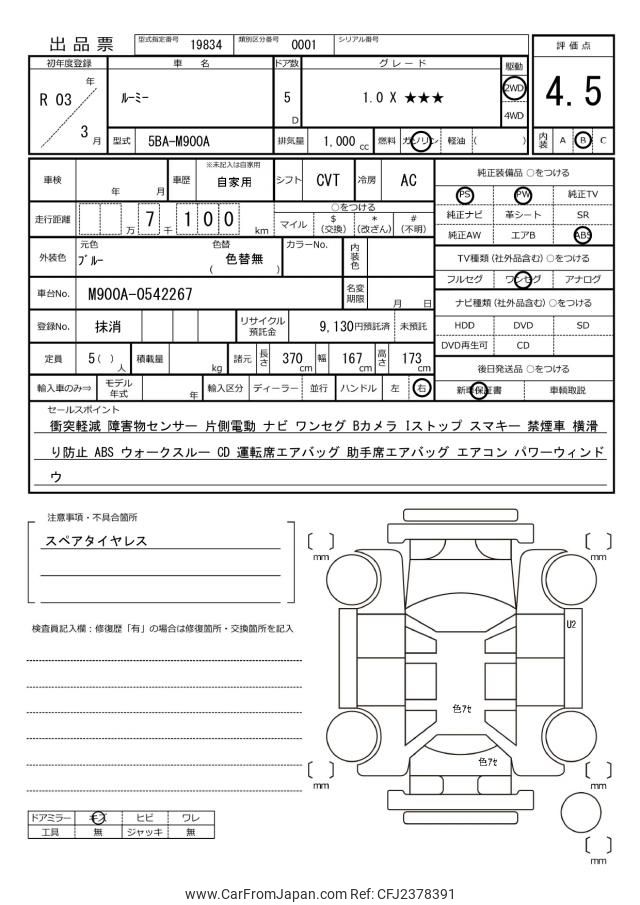 出品票 型式指定番号 19834 類別区分番号 0001 シリアル番号
評価点
4.5
内装 A B C
初年度登録 車 名 ドア数 グレード 駆動
R 03 年 3 月 ルーミー 5 D 1.0 X ★★★ 2WD 4WD
型式 5BA-M900A 排気量 1,000 cc 燃料 ガソリン 軽油 ( )
車検 年 月 車歴 ※未記入は自家用 自家用 シフト CVT 冷房 AC
走行距離 万 7 千 1 0 0 km
○をつける
マイル $(交換) *(改ざん) #(不明)
外装色 元色 ブルー 色替 ( 色替無 ) カラーNo. 内装色
車台No. M900A-0542267 名変期限 月 日
登録No. 抹消 リサイクル預託金 9,130円預託済 未預託
定員 5( ) 人 積載量 kg 諸元 長さ 370 cm 幅 167 cm 高さ 173 cm
輸入車のみ⇒ モデル年式 年 輸入区分 ディーラー 並行 ハンドル 左 右
純正装備品 ○をつける
PS PW 純正TV
純正ナビ 革シート SR
純正AW エアB ABS
TV種類 (社外品含む) ○をつける
フルセグ ワンセグ アナログ
ナビ種類 (社外品含む) ○をつける
HDD DVD SD
DVD再生可 CD
後日発送品 ○をつける
新車保証書 車輌取説
セールスポイント
衝突軽減 障害物センサー 片側電動 ナビ ワンセグ Bカメラ Iストップ スマキー 禁煙車 横滑
り防止 ABS ウォークスルー CD 運転席エアバッグ 助手席エアバッグ エアコン パワーウィンド
ウ
注意事項・不具合箇所
スペアタイヤレス
検査員記入欄：修復歴「有」の場合は修復箇所・交換箇所を記入
mm
mm
U2
色アセ
色アセ
mm
mm
mm
ドアミラー キズ ヒビ ワレ
工具 無 ジャッキ 無
www.CarFromJapan.com Ref: CFJ2378391